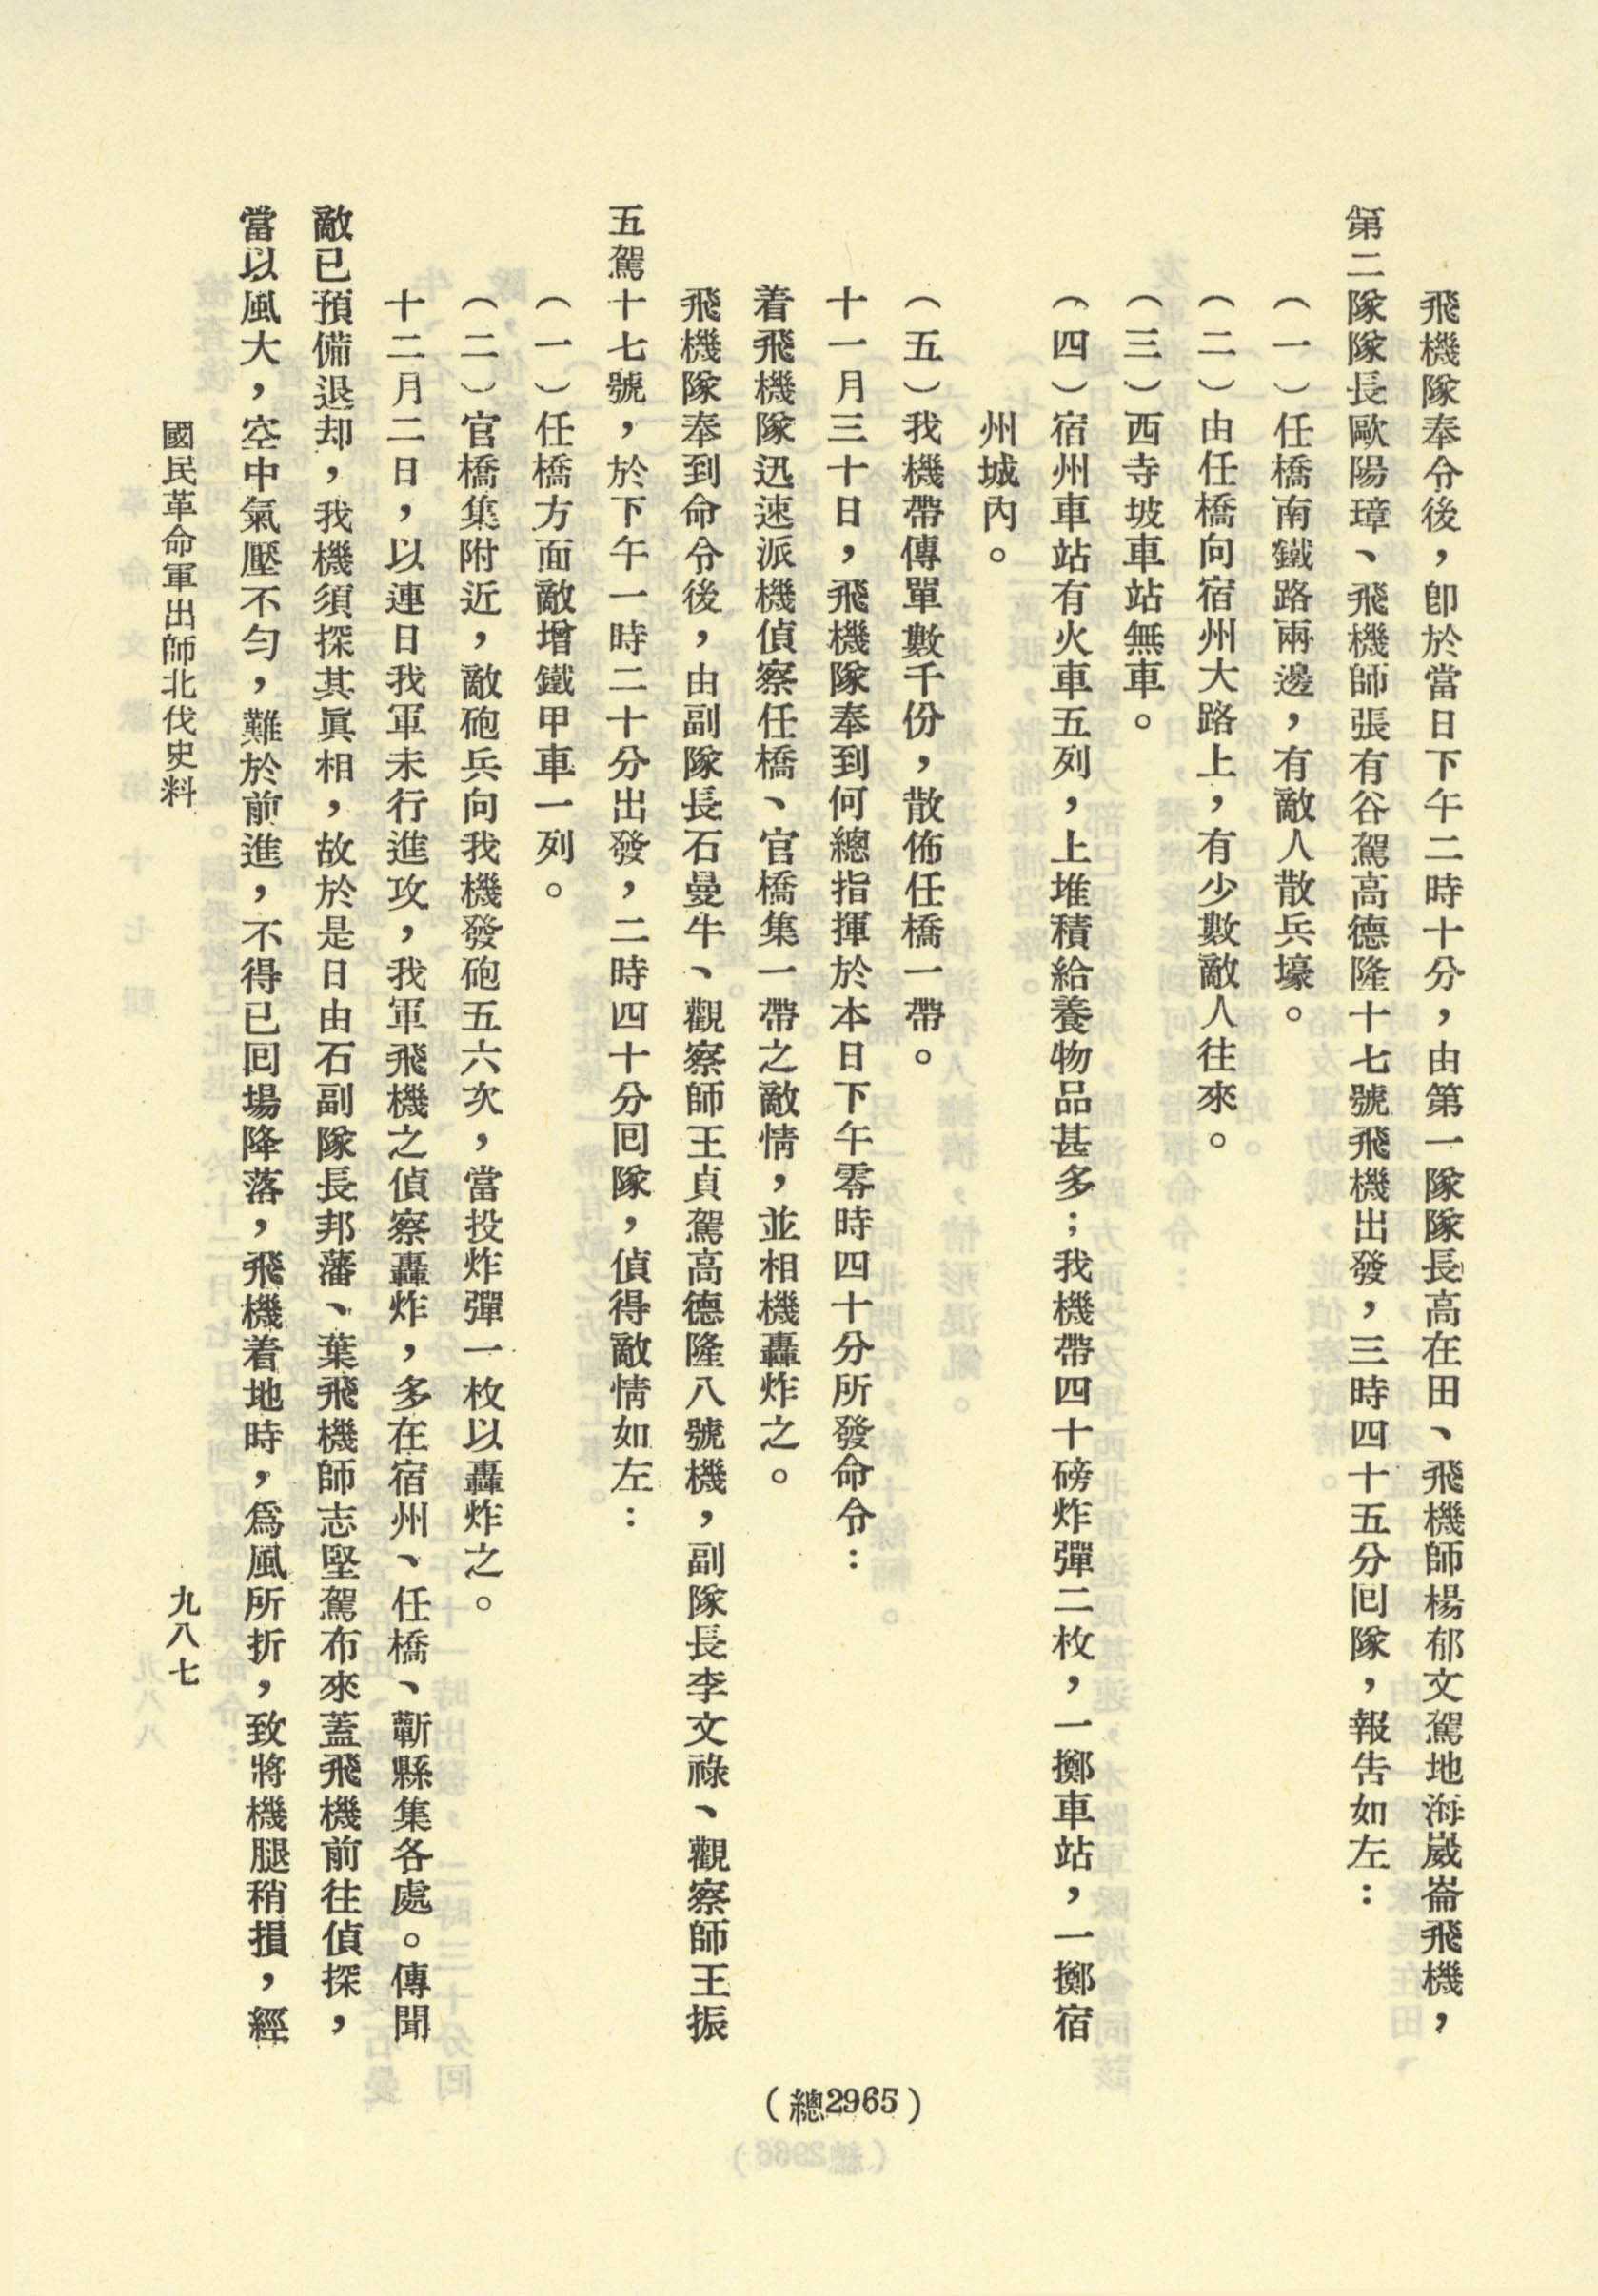 飛機隊奉令後，卽於當日下午二時十分，由第一隊隊長高在田、飛機師楊郁文駕地海崴崙飛機，
第二隊隊長歐陽璋、飛機師張有谷駕高德隆十七號飛機出發，三時四十五分囘隊，報告如左：
（一）任橋南鐵路兩邊，有敵人散兵壕。
（二）由任橋向宿州大路上，有少數敵人往來。
（三）西寺坡車站無車。
（四）宿州車站有火車五列，上堆積給養物品甚多；我機帶四十磅炸彈二枚，一擲車站，一擲宿
州城內。
（五）我機帶傳單數千份，散佈任橋一帶。
十一月三十日，飛機隊奉到何總指揮於本日下午零時四十分所發命令：
着飛機隊迅速派機偵察任橋、官橋集一帶之敵情，並相機轟炸之。
飛機隊奉到命令後，由副隊長石曼牛、觀察師王貞駕高德隆八號機，副隊長李文祿、觀察師王振
五駕十七號，於下午一時二十分出發，二時四十分囘隊，偵得敵情如左：
（一）任橋方面敵增鐵甲車一列。
（二）官橋集附近，敵砲兵向我機發砲五六次，當投炸彈一枚以轟炸之。
十二月二日，以連日我軍未行進攻，我軍飛機之偵察轟炸，多在宿州、任橋、蘄縣集各處。傳聞
敵已預備退却，我機須探其眞相，故於是日由石副隊長邦藩、葉飛機師志堅駕布來蓋飛機前往偵探，
當以風大，空中氣壓不勻，難於前進，不得已囘場降落，飛機着地時，爲風所折，致將機腿稍損，經
國民革命軍出師北伐史料
九八七
（總2965）